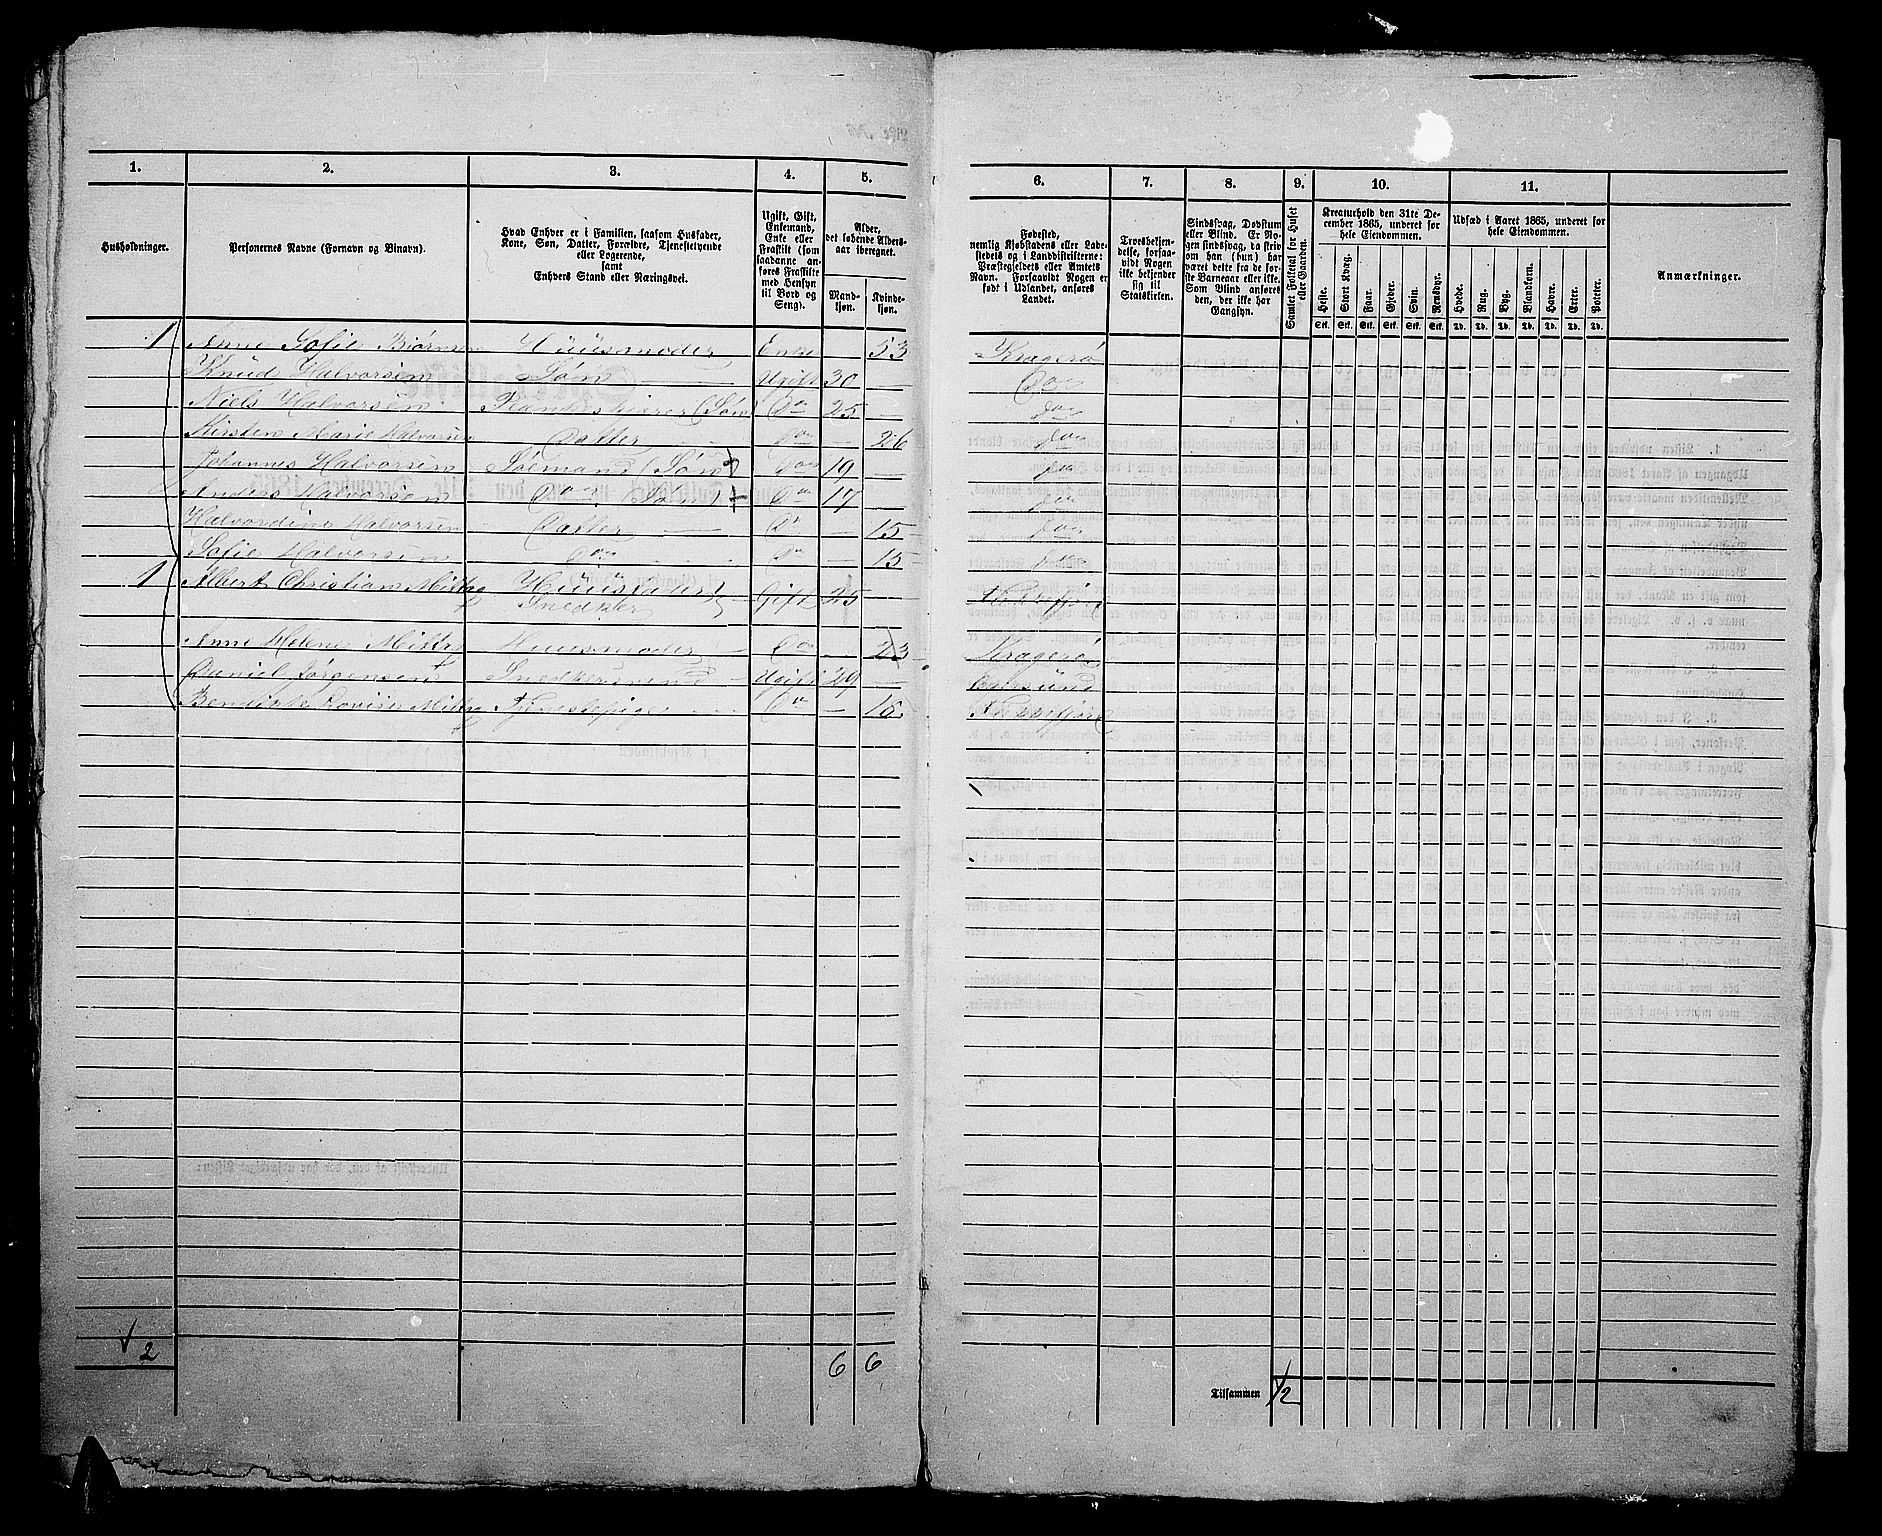 1. 2. 3. 4. 5. 6. 7. 8. 9. 10. 11.
Husholdninger.
Personernes Navne (Fornavn og Binavn).
Hvad Enhver er i Familien, saasom Husfader,
Kone, Søn, Datter, Forældre, Tjenestetyende
eller Logerende,
samt
Enhvers Stand eller Næringsvei.
Ugift, Gift,
Enkemand,
Enke eller
Fraskilt (som
saadanne an-
føres Fraskilte
med Hensyn
til Bord og
Seng).
Alder,
det løbende Alders-
aar iberegnet.
Mand-
kjøn.
Kvinde-
kjøn.
Fødested,
nemlig Kjøbstadens eller Lade-
stedets og i Landdistrikterne:
Præstegjeldets eller Amtets
Navn. Forsaavidt Nogen er
født i Udlandet, anføres
Landet.
Troesbekjen-
delse, forsaa-
vidt Nogen
ikke bekjender
sig til
Statskirken.
Sindssvag, Døvstum
eller Blind. Er No-
gen sindssvag, da skriv
om han (hun) har
været dette fra de før-
ste Barneaar eller ikke.
Som Blind anføres
den, der ikke har
Gangsyn.
Samlet Folketal for Huset
eller Gaarden.
Kreaturhold den 31te De-
cember 1865, underet for
hele Eiendommen.
Heste. Stort Kvæg. Faar. Gjeder. Svin. Rensdyr.
Stk. Stk. Stk. Stk. Stk. Stk.
Udsæd i Aaret 1865, underet for
hele Eiendommen.
Hvede. Rug. Byg. Blandkorn. Havre. Erter. Poteter.
Td. Td. Td. Td. Td. Td. Td.
Anmærkninger.
1 Anne Sofie Biørnsen Huusmoder Enke — 53 Kragerø
Knud Halvorsen Søn Ugift 30 — Do
Niels Halvorsen (Søn) Do 25 — do
Kirsten Marie Halvorsen Datter Do — 26 do
Johannes Halvorsen Sømand (Søn) Do 19 — do
Anders Halvorsen Do (Søn) Do 17 — do
Halvordine Halvorsen Datter Do — 15 do
Sofie Halvorsen Do Do — 15 do
1 Albert Christian Huusfader Gift 25
Snedker
Anne Helene Huusmoder Do — 23 Kragerø
Daniel Jørgensen Snedkersvend Ugift 29 — Egersund
Lovise Tjenestepige Do — 16
2 6 6
Tilsammen 12